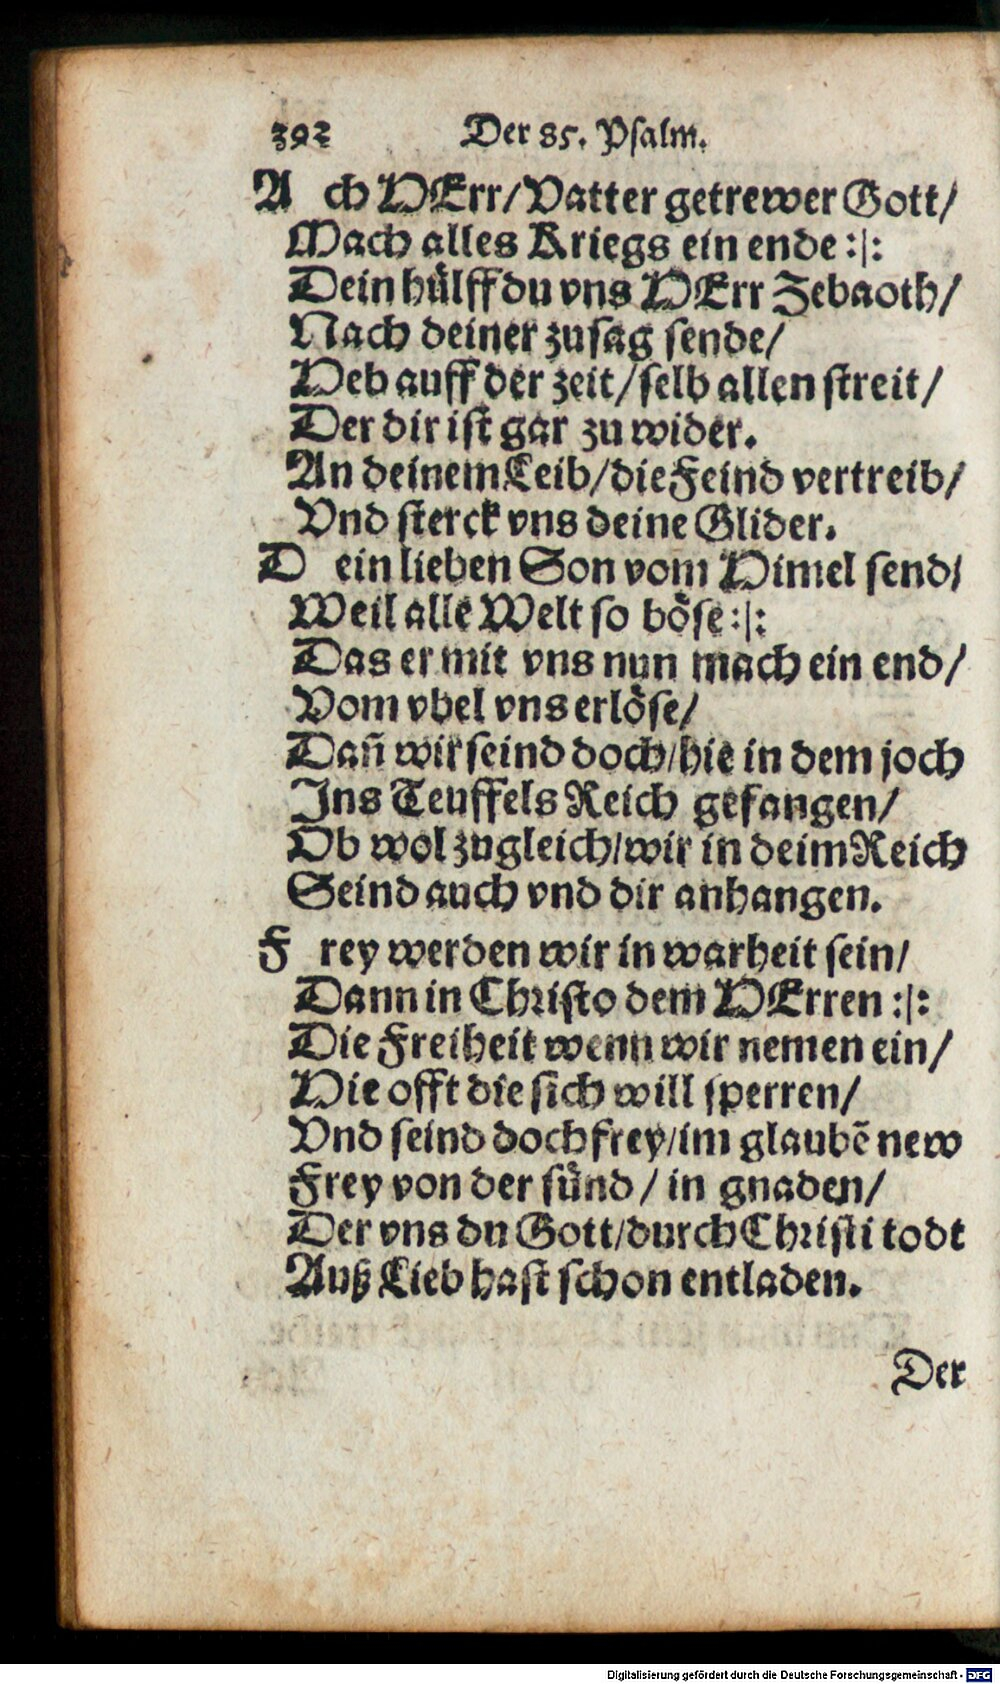 392 Der 85. Psalm.
Ach HErr/Vatter getrewer Gott/
Mach alles Kriegs ein ende :|:
Dein hülff du vns HErr Zebaoth/
Nach deiner zusag sende/
Heb auff der zeit/selb allen streit/
Der dir ist gar zu wider.
An deinem Leib/die Feind vertreib/
Vnd sterck vns deine Glider.
Dein lieben Son vom Himel send/
Weil alle Welt so böse :|:
Das er mit vns nun mach ein end/
Vom vbel vns erlöse/
Dañ wir seind doch/hie in dem joch
Ins Teuffels Reich gefangen/
Ob wol zugleich/wir in deim Reich
Seind auch vnd dir anhangen.
Frey werden wir in warheit sein/
Dann in Christo dem HErren :|:
Die Freiheit wenn wir nemen ein/
Hie offt die sich will sperren/
Vnd seind doch frey/im glaubẽ new
Frey von der sünd/ in gnaden/
Der vns du Gott/durch Christi todt
Auß Lieb hast schon entladen.
Der
Digitalisierung gefördert durch die Deutsche Forschungsgemeinschaft - DFG